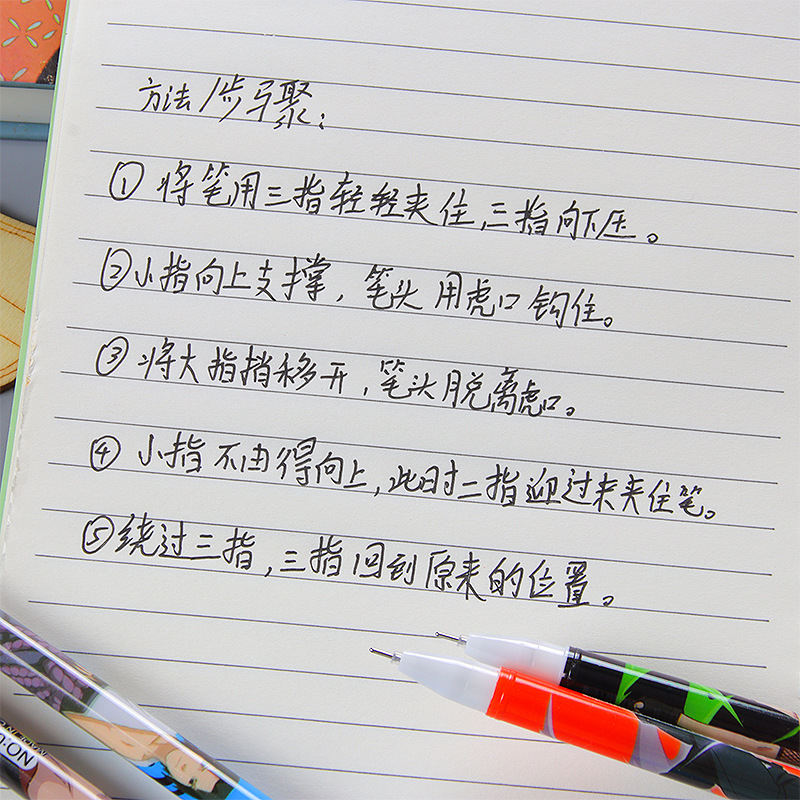 方法/步骤:
①将笔用三指轻轻夹住,三指向下压。
②小指向上支撑,笔头用虎口钩住。
③将大指挡移开,笔头脱离虎口。
④小指不由得向上,此时二指迎过来夹住笔。
⑤绕过三指,三指回到原来的位置。
NO: